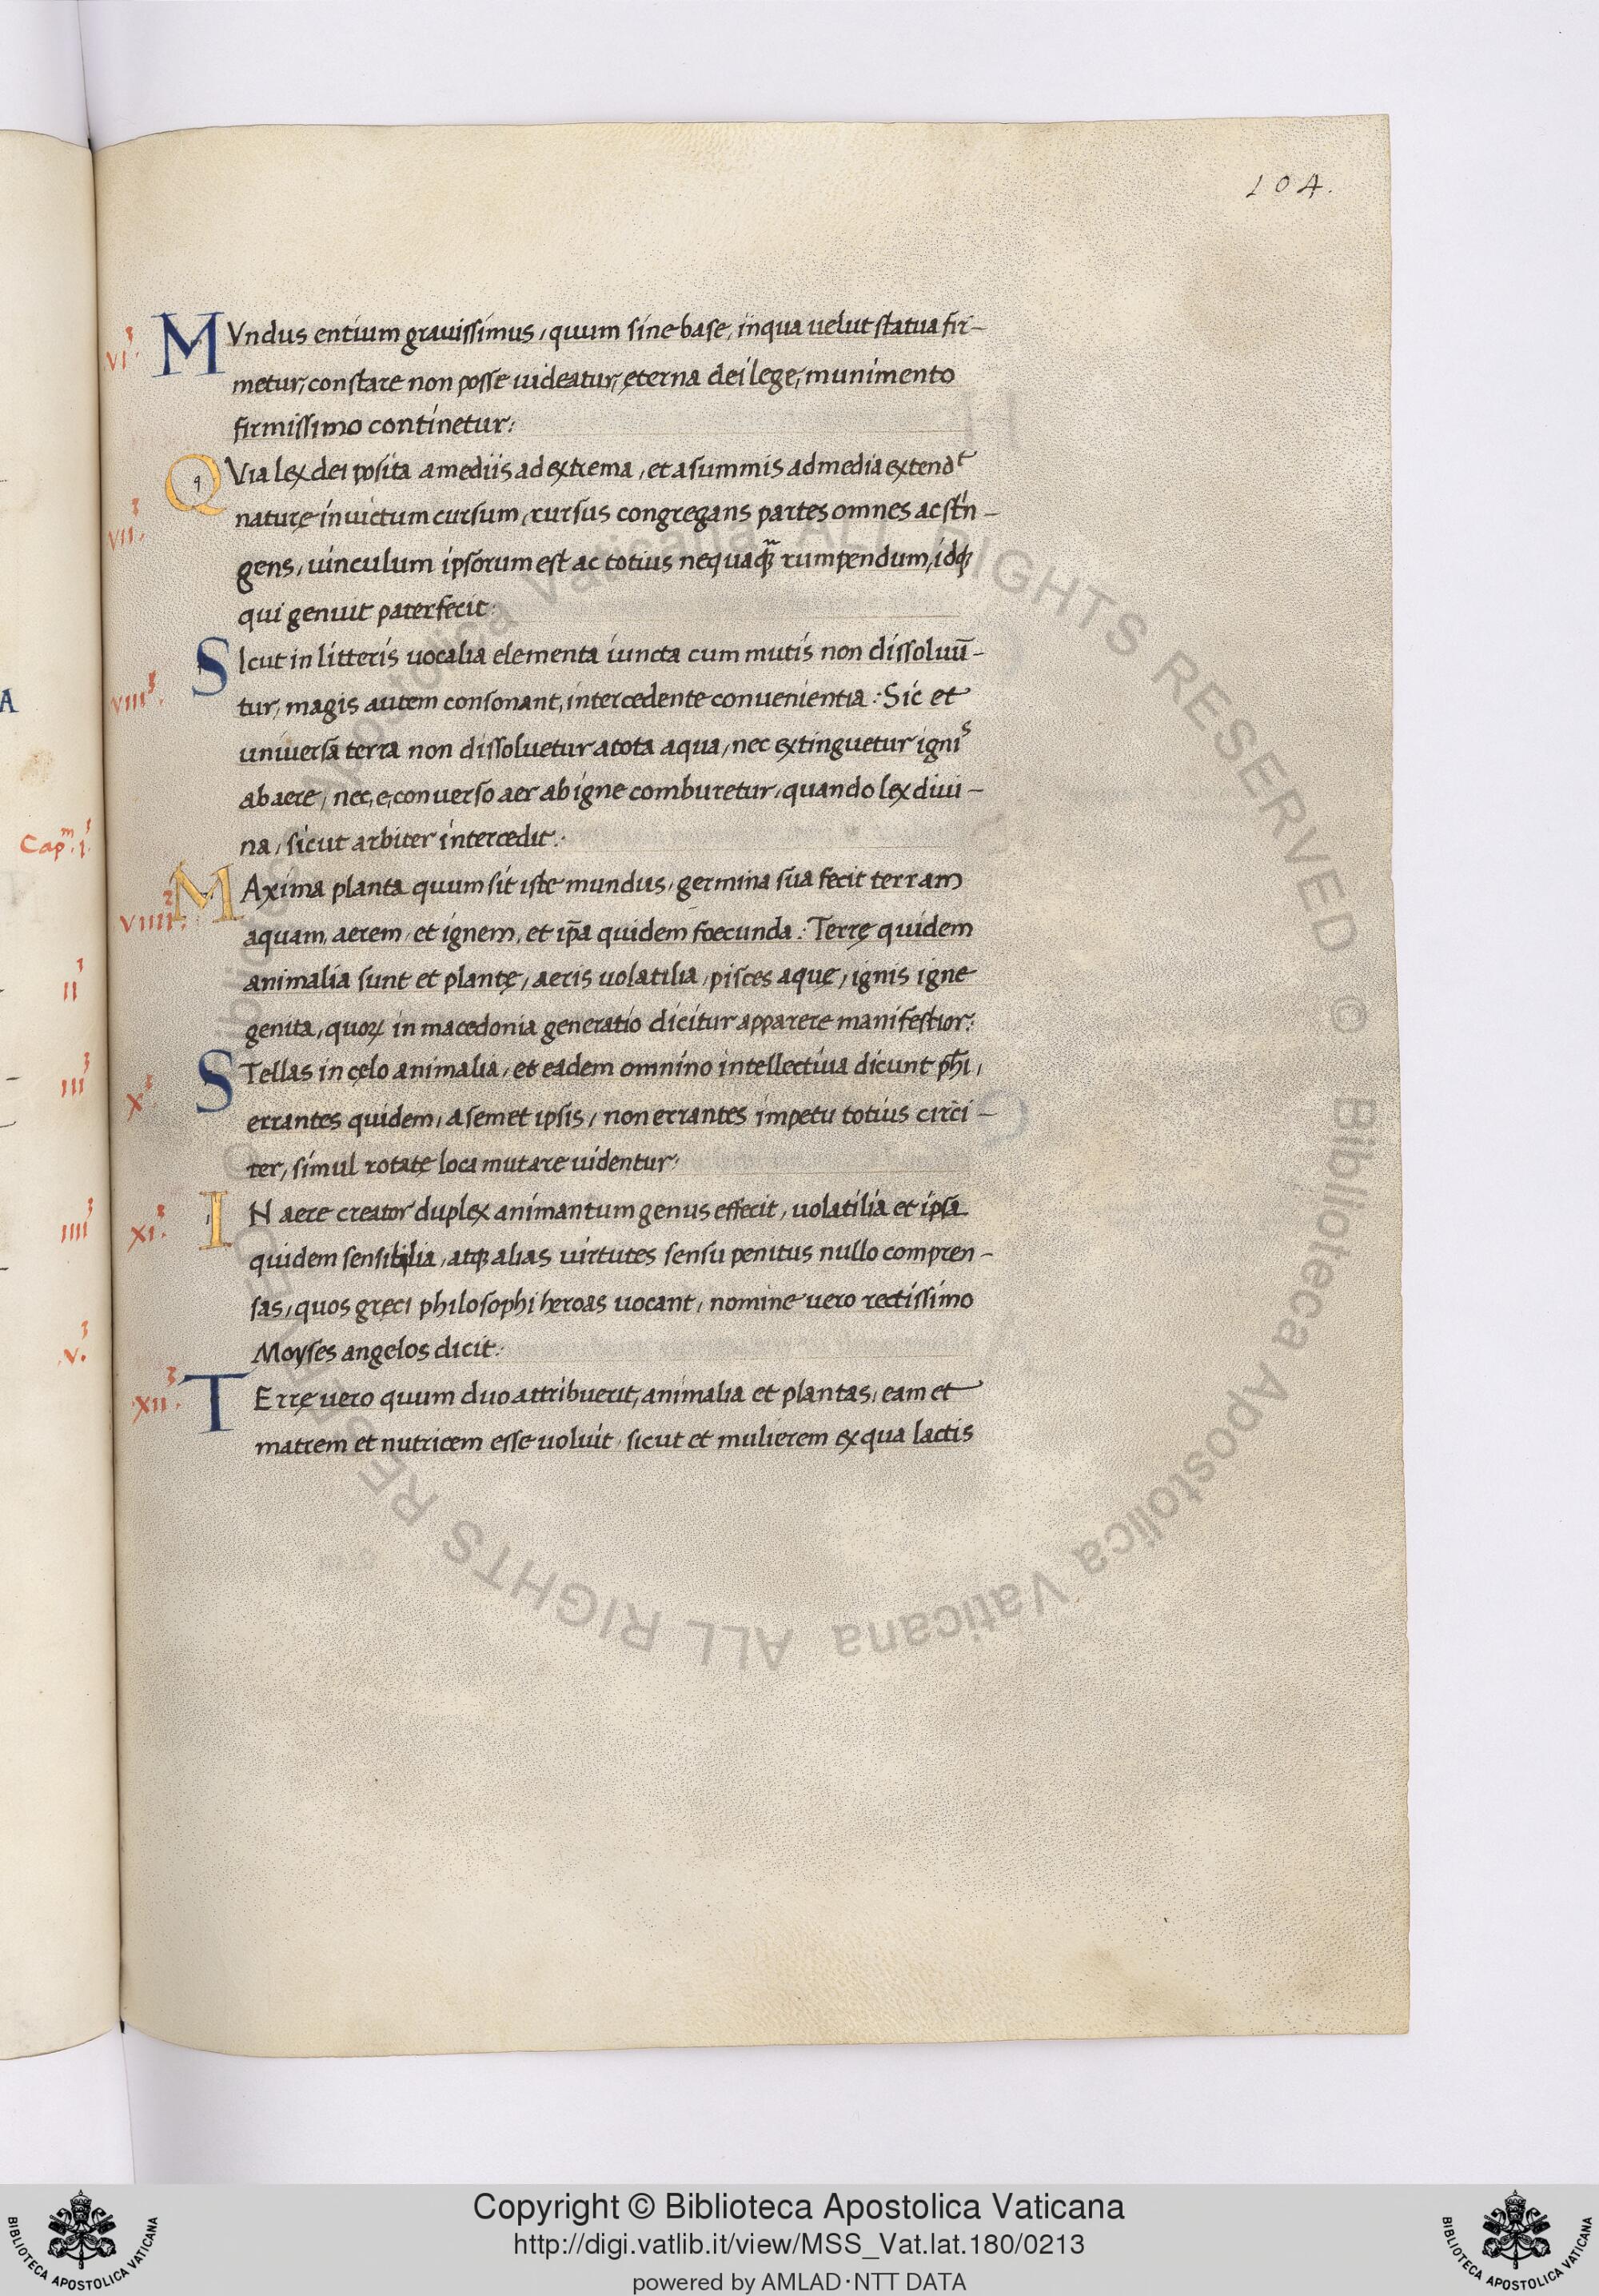 104.
VI³. MVndus entium grauissimus, quum sine base, in qua uelut statua fir-
metur, constare non posse uideatur, ęterna dei lege, munimento
firmissimo continetur:
VII³. QVia lex dei posita a mediis ad extrema, et a summis ad media extendᵗ
naturę inuictum cursum, rursus congregans partes omnes ac stⁱn-
gens, uinculum ipsorum est ac totius nequaꝗ̃ rumpendum, idꝗ
qui genuit pater fecit:
VIII³. SIcut in litteris uocalia elementa iuncta cum mutis non dissoluũ-
tur, magis autem consonant, intercedente conuenientia: Sic et
uniuersa terra non dissoluetur a tota aqua, nec extinguetur igniˢ
ab aere, nec, e, conuerso aer ab igne comburetur, quando lex diui-
na, sicut arbiter intercedit:
VIIII². MAxima planta quum sit iste mundus, germina sua fecit terram
aquam, aerem, et ignem, et ip̃a quidem foecunda: Terrę quidem
animalia sunt et plantę, aeris uolatilia, pisces aquę, ignis igne
genita, quoꝝ in macedonia generatio dicitur apparere manifestior:
X³ STellas in cęlo animalia, et eadem omnino intellectiua dicunt pħi,
errantes quidem, a semet ipsis, non errantes impetu totius circi-
ter, simul rotatę loca mutare uidentur:
XI³. IN aere creator duplex animantum genus effecit, uolatilia et ipsa
quidem sensibilia, atqꝫ alias uirtutes sensu penitus nullo compren-
sas, quos gręci philosophi heroas uocant, nomine uero rectissimo
Moyses angelos dicit:
XII³. TErrę uero quum duo attribuerit, animalia et plantas, eam et
matrem et nutricem esse uoluit, sicut et mulierem ex qua lactis
A
Capᵐ. I³.
II³
III³
IIII³
V³.
© Biblioteca Apostolica Vaticana ALL RIGHTS RESERVED © Biblioteca Apostolica Vaticana ALL RIGHTS RESERVED
BIBLIOTECA APOSTOLICA VATICANA
Copyright © Biblioteca Apostolica Vaticana
http://digi.vatlib.it/view/MSS_Vat.lat.180/0213
powered by AMLAD·NTT DATA
BIBLIOTECA APOSTOLICA VATICANA